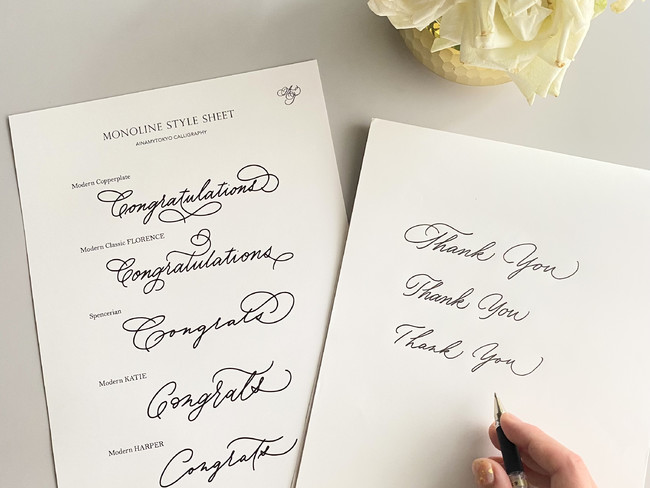 MONOLINE STYLE SHEET
AINAMYTOKYO CALLIGRAPHY
Modern Copperplate
Congratulations
Modern Classic FLORENCE
Congratulations
Spencerian
Congrats
Modern KATIE
Congrats
Modern HARPER
Congrats
Thank You
Thank You
Thank You